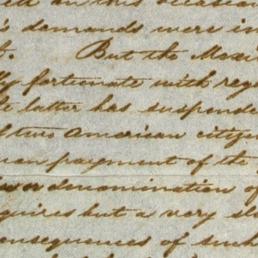 on this occasion
's demands were in
But the Mexi
fortunate with reg
latter has suspend
two American citize
payment of the
denomination of
quires but a very sl
onsequences of such